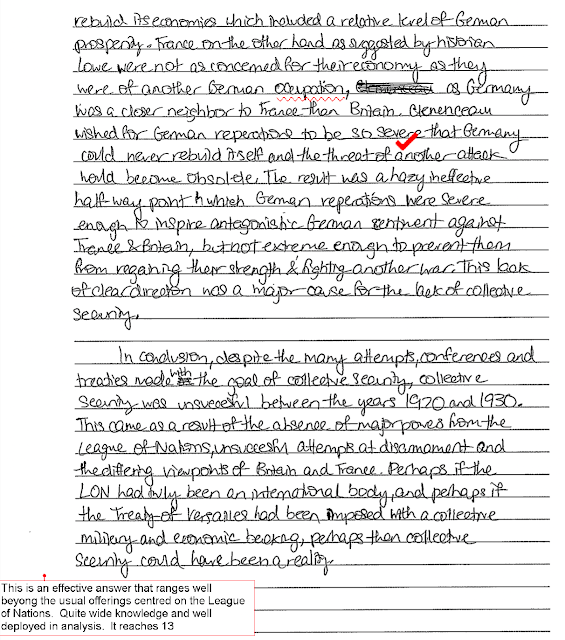 rebuild its economies which included a relative level of German
prosperity. France on the other hand as suggested by historian
Lowe were not as concerned for their economy as they
were of another German ocupation, as Germany
was a closer neighbor to France than Britain. Clemenceau
wished for German reperations to be so severe that Germany
could never rebuild itself and the threat of another attack
would become obsolete. The result was a hazy ineffective
half-way point in which German reperations were severe
enough to inspire antagonistic German sentiment against
France & Britain, but not extreme enough to prevent them
from regaining their strength & fighting another war. This lack
of clear direction was a major cause for the lack of collective
security.
In conclusion, despite the many attempts, conferences and
treaties made with the goal of collective security, collective
security was unsuccesful between the years 1920 and 1930.
This came as a result of the absence of major powers from the
League of Nations, unsuccesful attempts at disarmament and
the differing viewpoints of Britain and France. Perhaps if the
LON had truly been an international body, and perhaps if
the Treaty of Versailles had been imposed with a collective
military and economic backing, perhaps then collective
security could have been a reality.
This is an effective answer that ranges well
beyong the usual offerings centred on the League
of Nations. Quite wide knowledge and well
deployed in analysis. It reaches 13